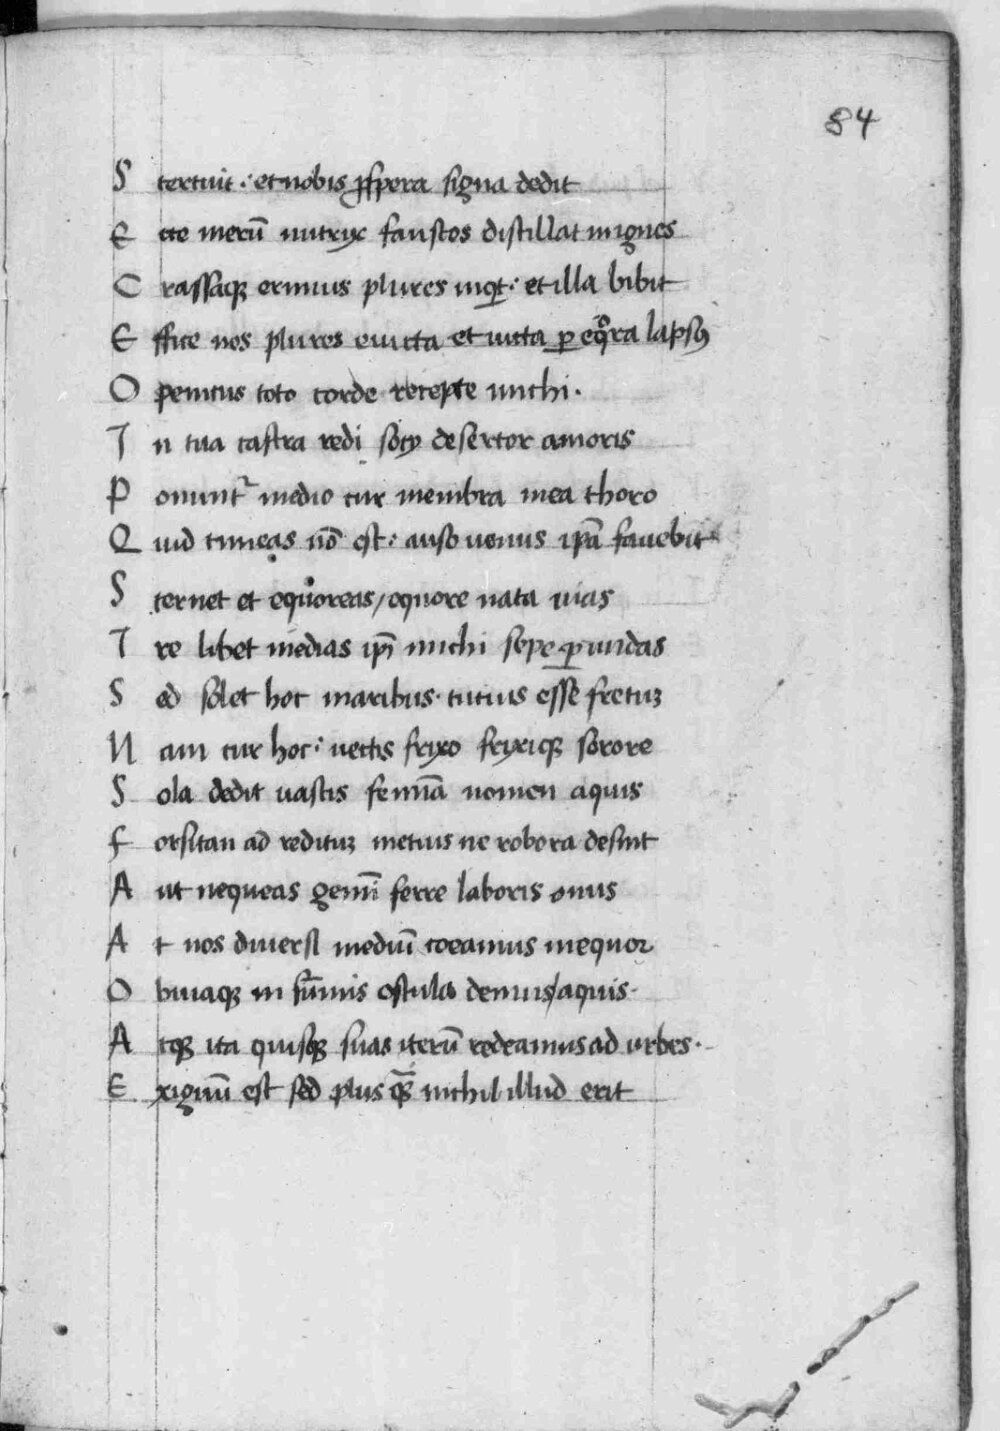 84
S ternuit : et nobis ꝓspera signa dedit
E cce merū nutryx faustos distillat in ignes
C rassaqꝫ erimus plures inqt : et illa bibit
E ffice nos plures euicta et uicta ꝑ eqͦra lapsꝰ
O penitus toto corde recepte michi.
I n tua castra redi socy desertor amoris
P onunt᷑ medio cur membra mea thoro
Q uid timeas nō est : auso uenus ip̄a fauebit
S ternet et equoreas / equore nata uias
I re libet medias ip̄i michi sepe ꝑ undas
S ed solet hoc maribus tutius esse fretuꝫ
N am cur hoc : uectis frixo frixiqꝫ sorore
S ola dedit uastis femīa nomen aquis
F orsitan ad redituꝫ metuis ne robora desint
A ut nequeas gemī ferre laboris onus
A t nos diuersi mediū coeamus in equor
O buiaqꝫ in sūmis oscula demus/aquis.
A tqꝫ ita quisqꝫ suas iterū redeamus ad urbes.
E xiguū est sed plus qꝫ̄ nichil illud erit